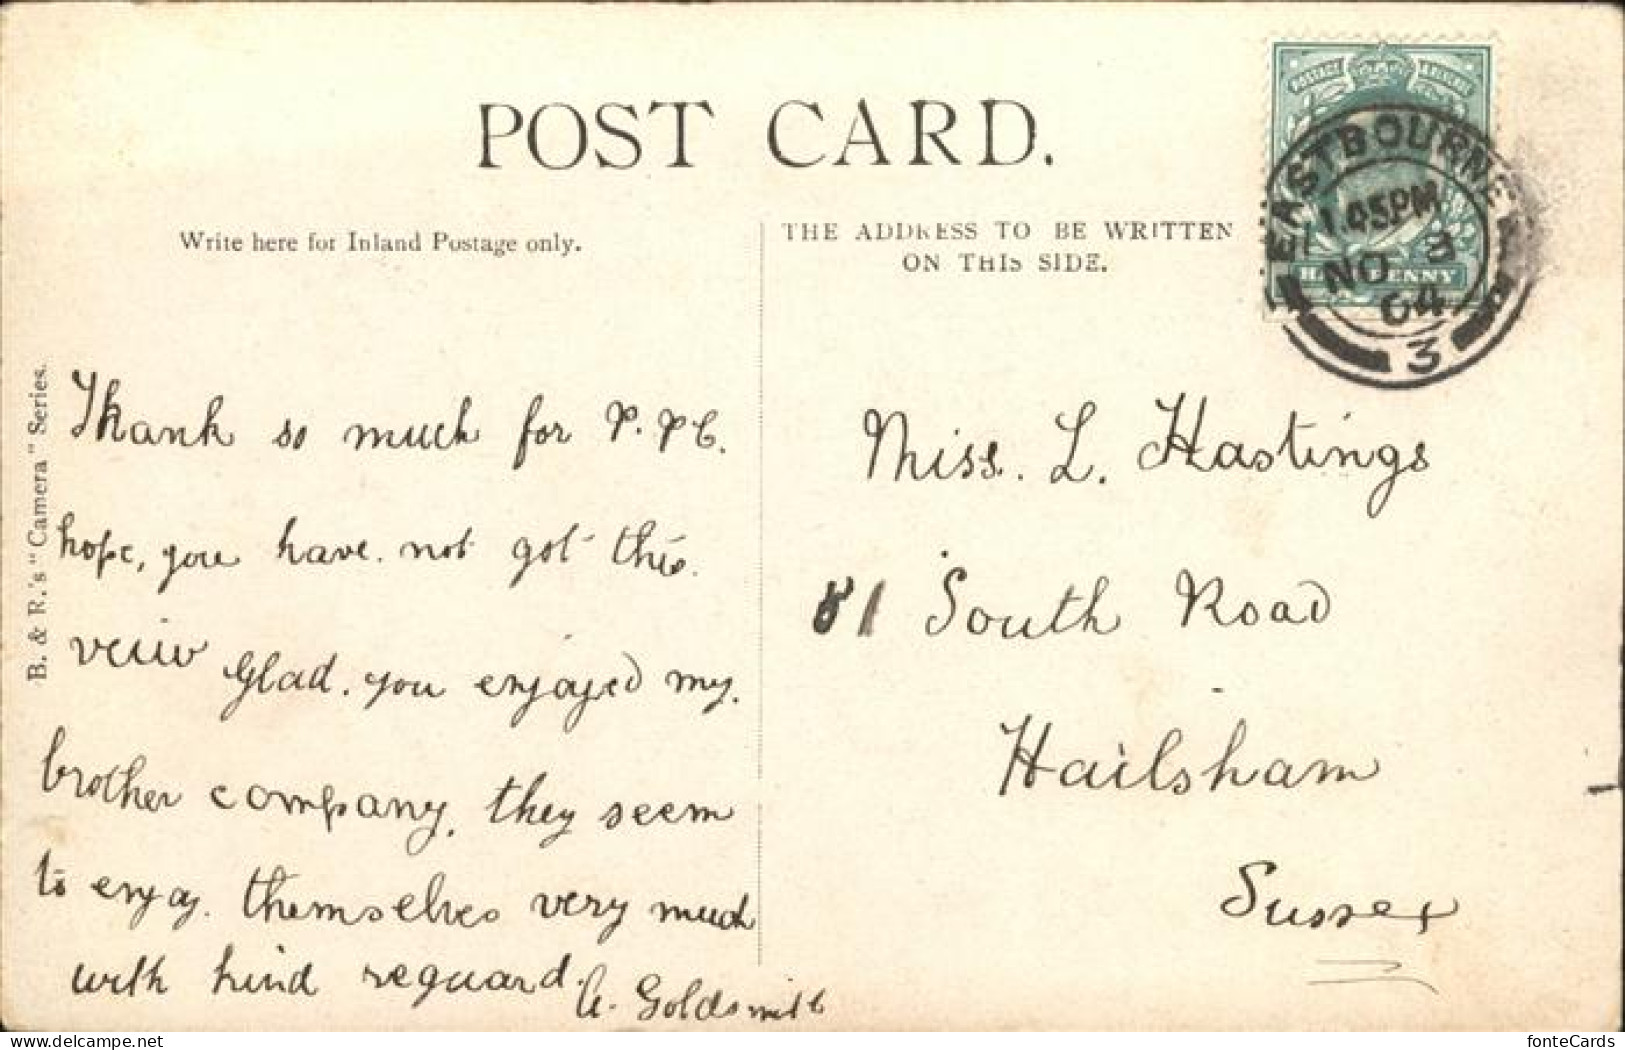 POST CARD.
Write here for Inland Postage only.
THE ADDRESS TO BE WRITTEN
ON THIS SIDE.
POSTAGE & REVENUE
HALFPENNY
EASTBOURNE
1.45PM
NO 3
04
3
B. & R.'s "Camera" Series.
Thank so much for P.P.C.
hope, you have. not got this.
veiw Glad. you enjoyed my.
brother company, they seem
to enjoy. themselves very much
with kind reguard.
A. Goldsmith
Miss. L. Hastings
81 South Road
Hailsham
Sussex
fonteCards
delcampe.net